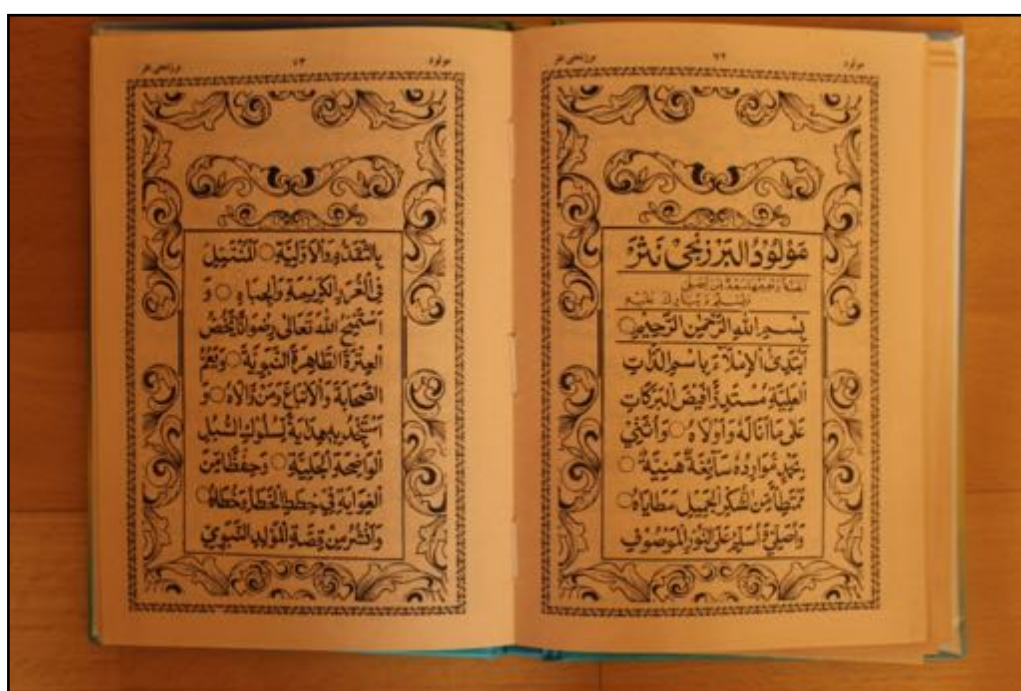 مولود ٧٢ برزنجي نثر
مَوْلُودُ الْبَرْزَنْجِيْ نَثَرْ
بِسْمِ اللهِ الرَّحْمٰنِ الرَّحِيْمِ
اَبْتَدِئُ الْاِمْلَاءَ بِاسْمِ الذَّاتِ
الْعَلِيَّةِ مُسْتَدِرًّا فَيْضَ الْبَرَكَاتِ
عَلٰى مَا اَنَالَهُ وَاَوْلَاهُ ○ وَاُثَنِّيْ
بِحَمْدٍ مَوَارِدُهُ سَائِغَةٌ هَنِيَّةٌ ○
مُمْتَطِيًا مِنَ الشُّكْرِ الْجَمِيْلِ مَطَايَاهُ ○
وَاُصَلِّيْ وَاُسَلِّمُ عَلَى النُّوْرِ الْمَوْصُوْفِ
مولود ٧٣ برزنجي نثر
بِالتَّقَدُّمِ وَالْاَوَّلِيَّةِ ○ الْمُنْتَقِلِ
فِي الْغُرَرِ الْكَرِيْمَةِ وَالْجِبَاهِ ○ وَ
اَسْتَمْنِحُ اللهَ تَعَالٰى رِضْوَانًا يَخُصُّ
الْعِتْرَةَ الطَّاهِرَةَ النَّبَوِيَّةَ ○ وَيَعُمُّ
الصَّحَابَةَ وَالْاَتْبَاعَ وَمَنْ وَالَاهُ ○ وَ
اَسْتَجْدِيْهِ هِدَايَةً لِسُلُوْكِ السُّبُلِ
الْوَاضِحَةِ الْجَلِيَّةِ ○ وَحِفْظًا مِنَ
الْغِوَايَةِ فِيْ خِطَطِ الْخَطَأِ وَخُطَاهُ ○
وَاَنْشُرُ مِنْ قِصَّةِ الْمَوْلِدِ النَّبَوِيِّ